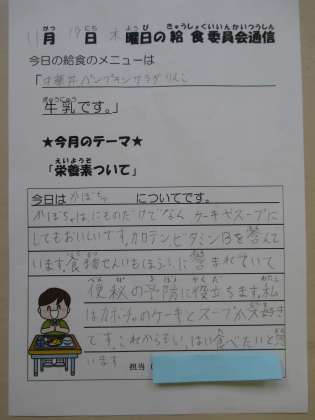 11月17日木曜日の給食委員会通信
今日の給食のメニューは
「中華丼パンプキンサラダりんご
牛乳です。」
★今月のテーマ★
「栄養素ついて」
今日は かぼちゃ についてです。
かぼちゃは、にものだけでなく ケーキやスープに
してもおいしいです。カロテン、ビタミンBを含んで
います。食物せんいもほうふに含まれていて
便秘の予防に役立ちます。私
はカボチャのケーキとスープが大好き
です。これからもいっぱい食べたいと思
います
担当(